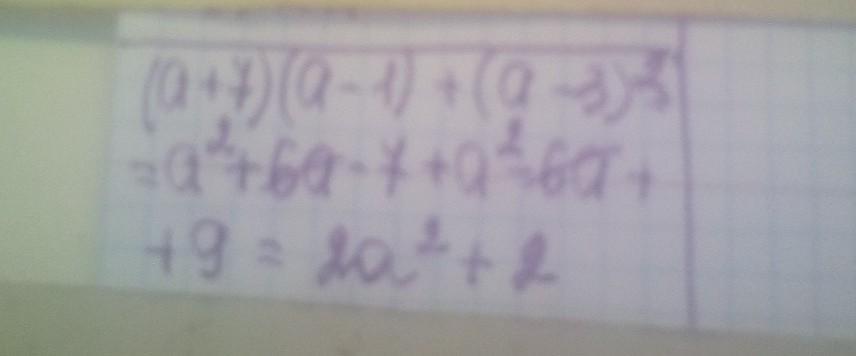 (a+7)(a-1)+(a-3)²=
=a²+6a-7+a²-6a+
+9=2a²+2